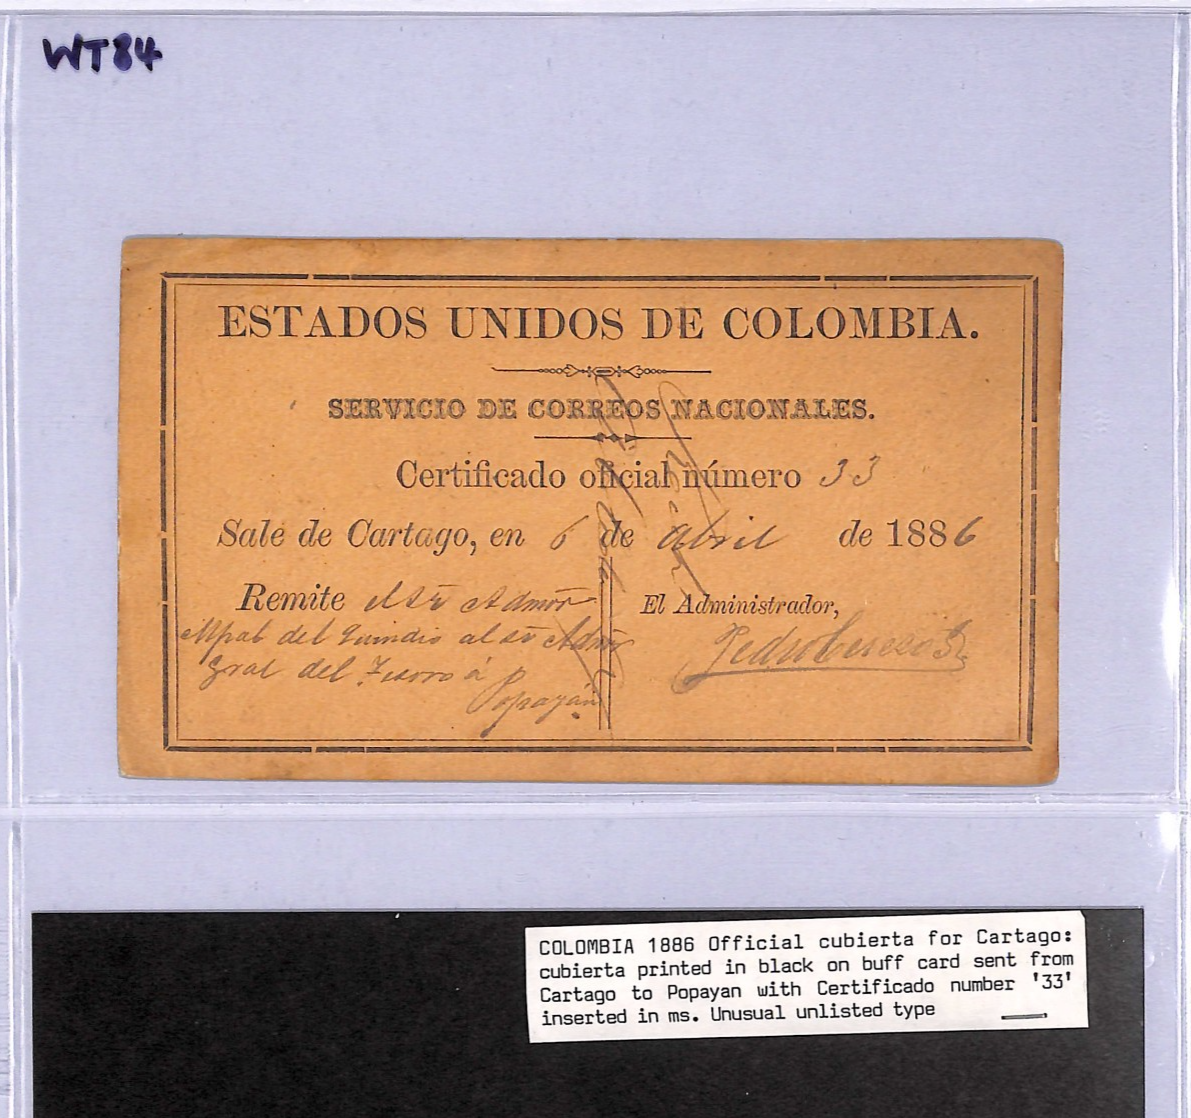 WT84
ESTADOS UNIDOS DE COLOMBIA.
SERVICIO DE CORREOS NACIONALES.
Certificado oficial número 33
Sale de Cartago, en 6 de abril de 1886
Remite el Sr Admor
El Administrador,
Mpal del Quindio al Sr Admor
Gral del Tesoro á
Popayán
COLOMBIA 1886 Official cubierta for Cartago:
cubierta printed in black on buff card sent from
Cartago to Popayan with Certificado number '33'
inserted in ms. Unusual unlisted type